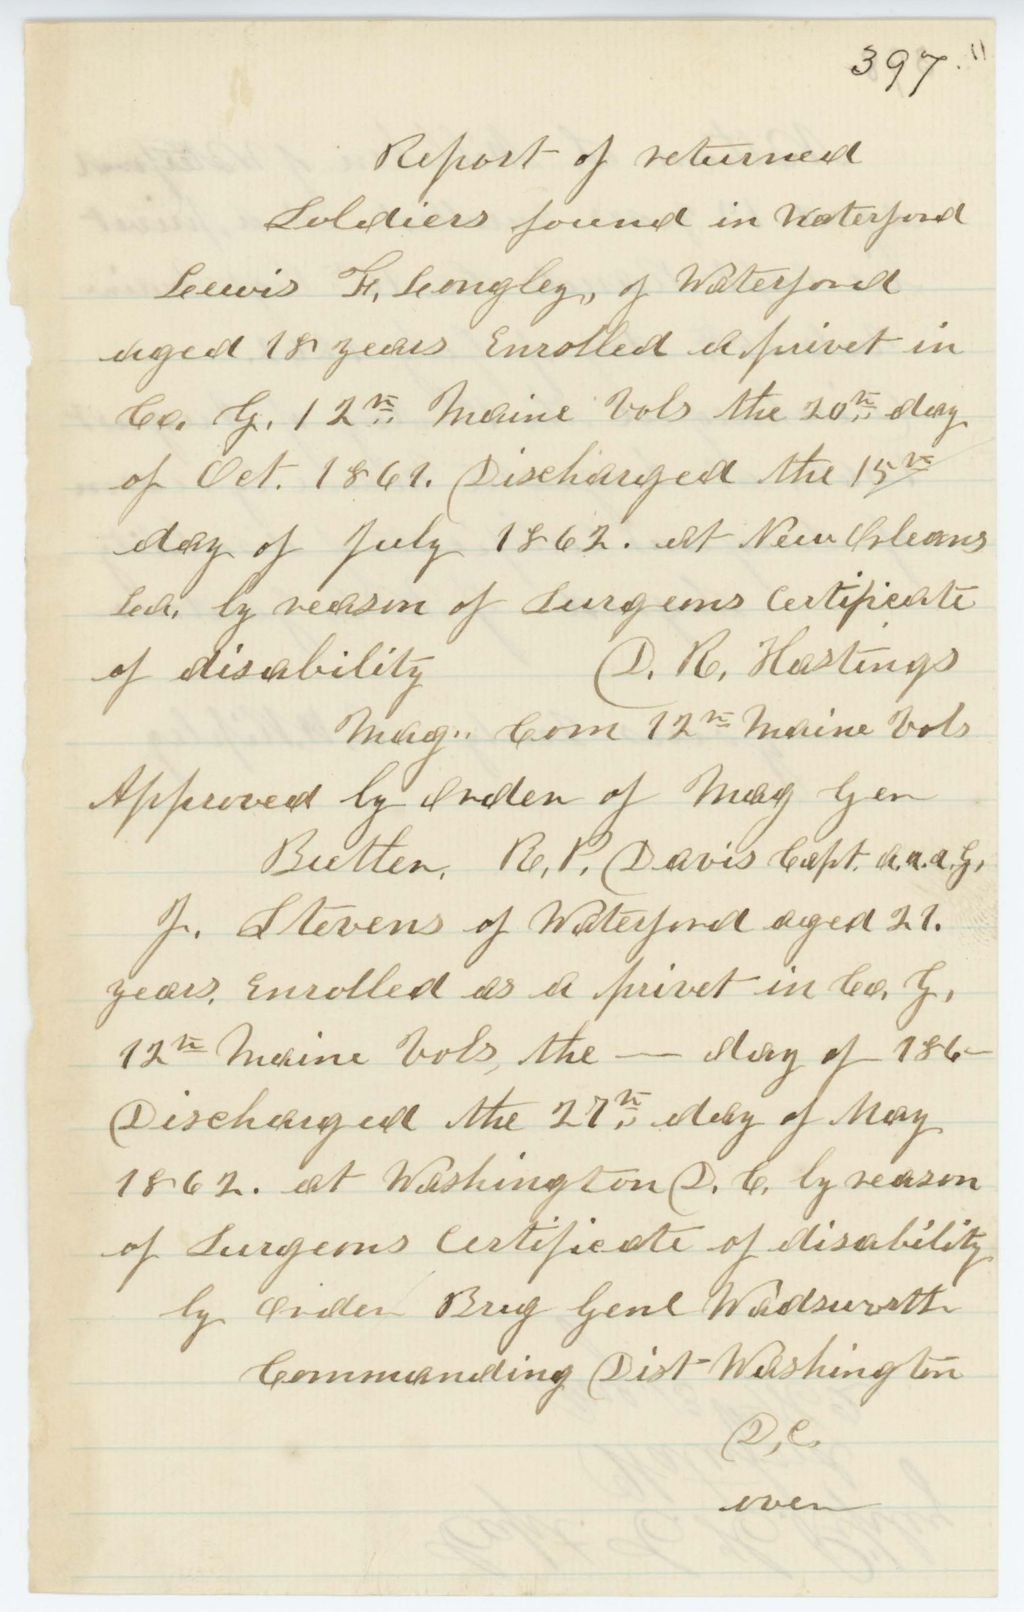 397. "
Report of returned
Soldiers found in Waterford
Lewis F. Longley, of Waterford
aged 18 years Enrolled a privet in
Co. G. 12th Maine Vols the 20th day
of Oct. 1861. Discharged the 15th
day of July 1862. at New Orleans
La. by reason of Surgeons Certificate
of disability D. R. Hastings
Mag.. Com 12th Maine Vols
Approved by Order of Mag Gen
Butler. R. P. Davis Capt. a.a.a.G.
J. Stevens of Waterford aged 21.
years. Enrolled as a privet in Co. G.
12th Maine Vols, the — day of 186-
Discharged the 27th day of May
1862. at Washington D. C. by reason
of Surgeons Certificate of disability
by Order Brig Genl Wadsworth
Commanding Dist Washington
D. C.
over